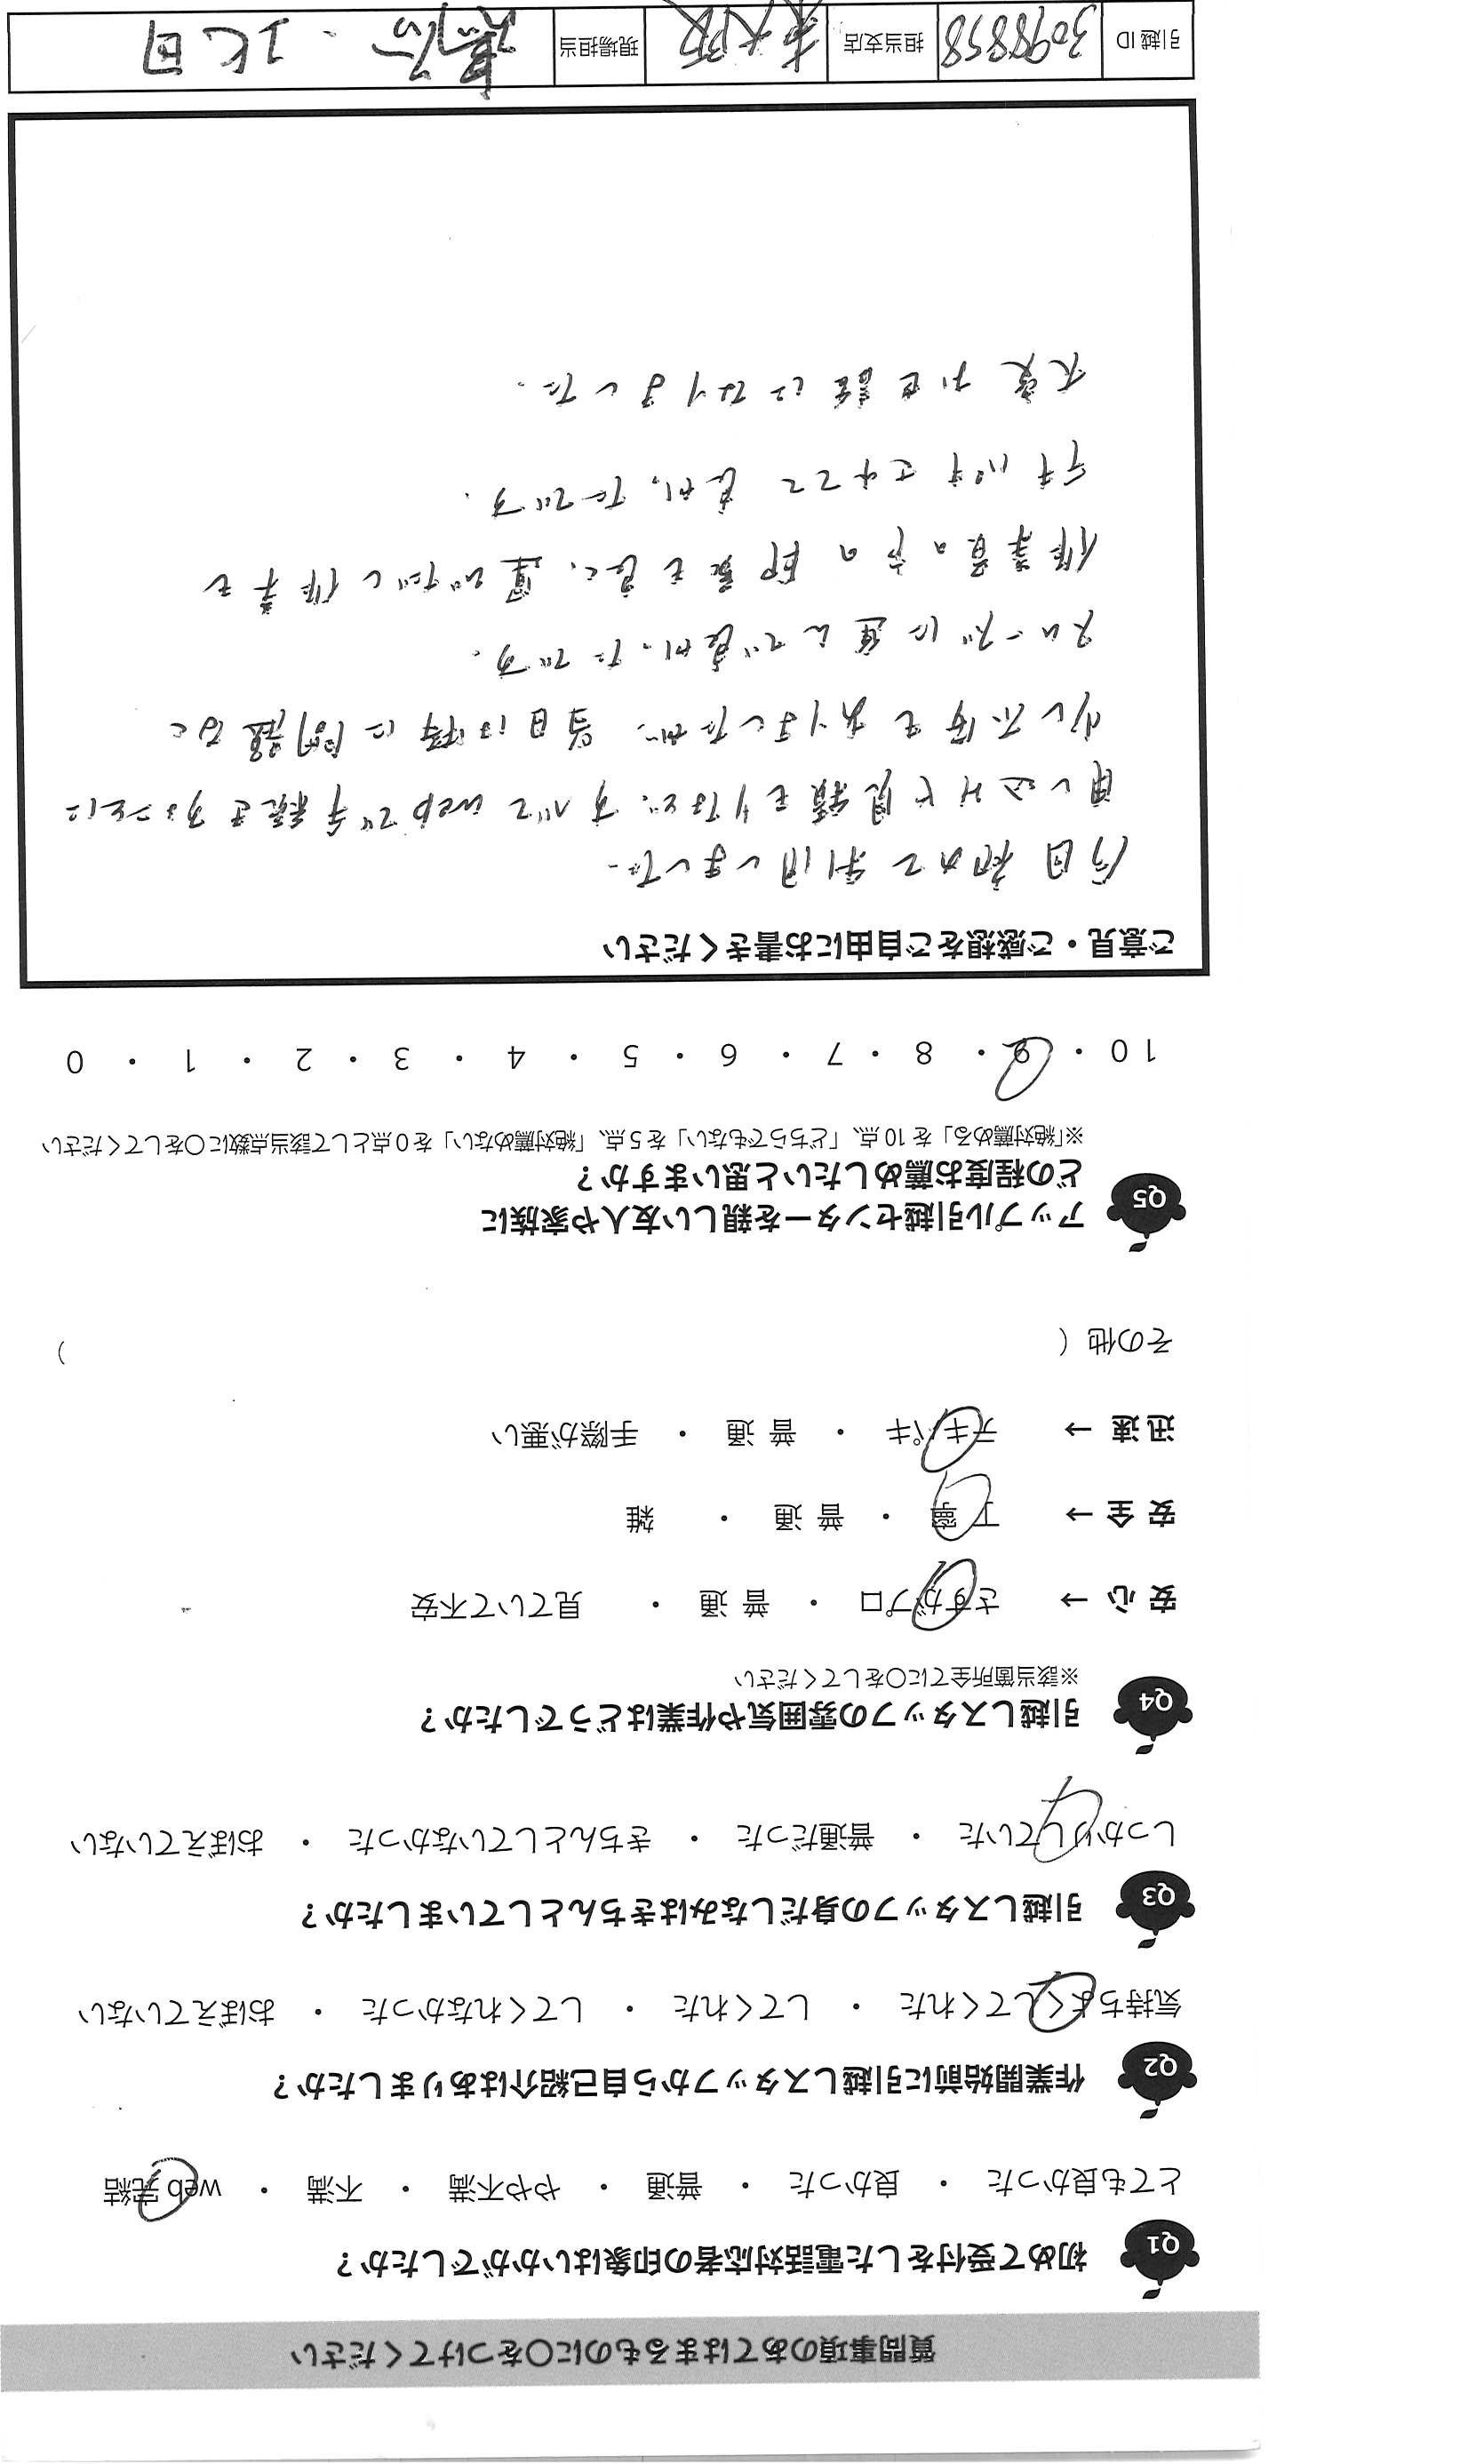 質問事項のあてはまるものに〇をつけてください
Q1 初めて受付をした電話対応者の印象はいかがでしたか？
とても良かった ・ 良かった ・ 普通 ・ やや不満 ・ 不満 ・ web 完結
Q2 作業開始前に引越しスタッフから自己紹介はありましたか？
気持ちよくしてくれた ・ してくれた ・ してくれなかった ・ おぼえていない
Q3 引越しスタッフの身だしなみはきちんとしていましたか？
しっかりしていた ・ 普通だった ・ きちんとしていなかった ・ おぼえていない
Q4 引越しスタッフの雰囲気や作業はどうでしたか？
※該当箇所全てに〇をしてください
安 心 → さすがプロ ・ 普 通 ・ 見ていて不安
安 全 → 丁 寧 ・ 普 通 ・ 雑
迅 速 → テキパキ ・ 普 通 ・ 手際が悪い
その他（ ）
Q5 アップル引越センターを親しい友人や家族に
どの程度お薦めしたいと思いますか？
※「絶対薦める」を 10 点、「どちらでもない」を 5 点、「絶対薦めない」を 0 点として該当点数に〇をしてください
10 ・ 9 ・ 8 ・ 7 ・ 6 ・ 5 ・ 4 ・ 3 ・ 2 ・ 1 ・ 0
ご意見・ご感想をご自由にお書きください
今回初めて利用しました。
申し込みや見積もりなど、すべてwebで手続きすることに
少し不安もありましたが、当日は特に問題なく
スムーズに進んで良かったです。
作業員の方の印象も良く、運びだし作業も
テキパキされてて良かったです。
大変お世話になりました。
引越 ID 3098858 担当支店 東大阪 現場担当 ・北田